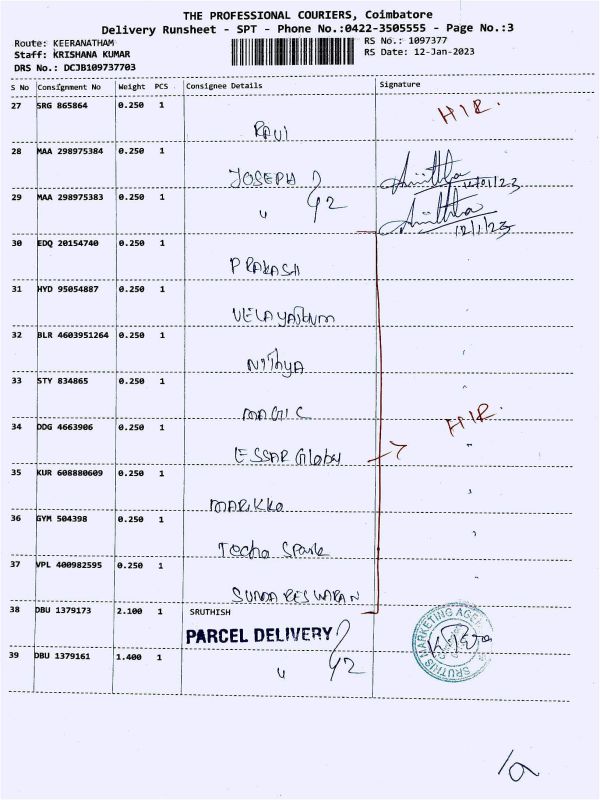 THE PROFESSIONAL COURIERS, Coimbatore
Delivery Runsheet - SPT - Phone No.:0422-3505555 - Page No.:3
Route: KEERANATHAM
RS No.: 1097377
Staff: KRISHANA KUMAR
RS Date: 12-Jan-2023
DRS No.: DCJB109737703
S No Consignment No Weight PCS Consignee Details Signature
27 SRG 865864 0.250 1
RAVI
HIR.
28 MAA 298975384 0.250 1
JOSEPH
12/01/23
29 MAA 298975383 0.250 1
" 92
12/1/23
30 EDQ 20154740 0.250 1
PRAKASH
31 HYD 95054887 0.250 1
32 BLR 4603951264 0.250 1
NiThyA
33 STY 834865 0.250 1
MAGIC
HIR.
34 DDG 4663906 0.250 1
ESSAR Global
35 KUR 608880609 0.250 1
36 GYM 504398 0.250 1
37 VPL 400982595 0.250 1
SUNDARESWARAN
38 DBU 1379173 2.100 1 SRUTHISH
PARCEL DELIVERY
39 DBU 1379161 1.400 1
" 92